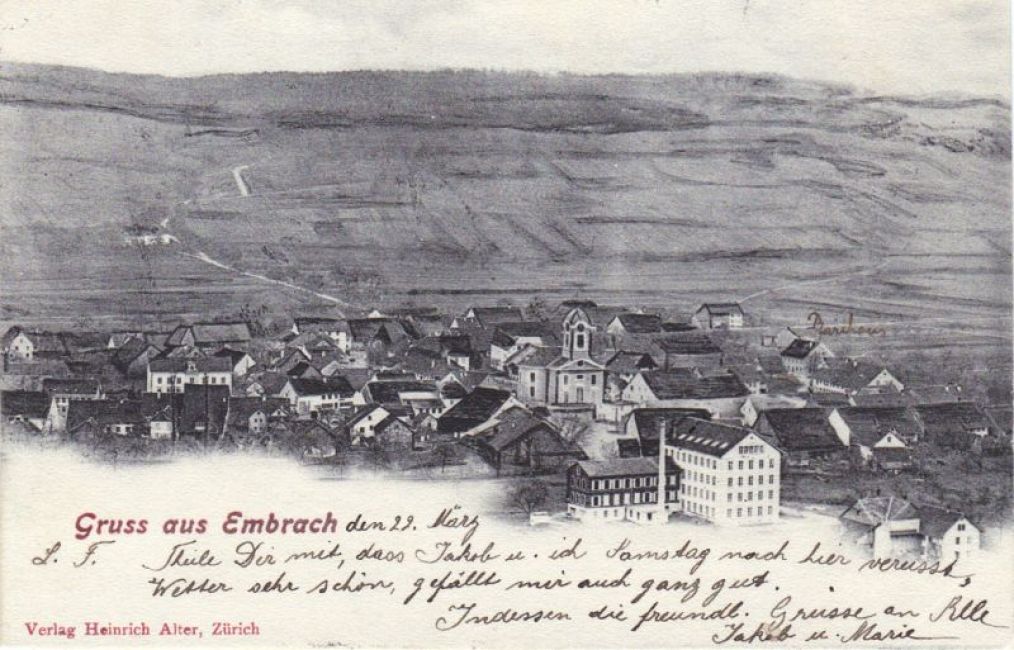 Gruss aus Embrach den 22. März
L. F. Theile Dir mit, dass Jakob u. ich Samstag nach hier vereisst,
Wetter sehr schön, gefällt mir auch ganz gut.
Indessen die freundl. Grüsse an Alle
Jakob u. Marie
Verlag Heinrich Alter, Zürich